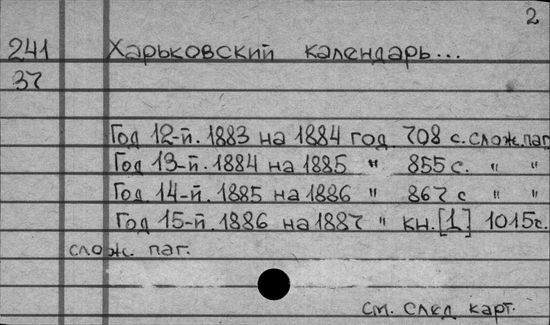 2
241 Харьковский календарь...
37
Год 12-й. 1883 на 1884 год 708 с. слож. паг
Год 13-й. 1884 на 1885 " 855 с. " "
Год 14-й. 1885 на 1886 " 867 с " "
Год 15-й 1886 на 1887 " кн. [1] 1015с.
слож. паг.
см. след карт.